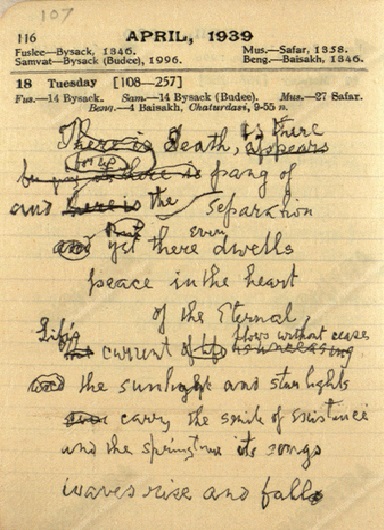 107
116 APRIL, 1939
Fuslee—Bysack, 1346. Mus.—Safar, 1358.
Samvat—Bysack (Budee), 1996. Beng.—Baisakh, 1346.
18 Tuesday [108—257]
Fus.—14 Bysack. Sam—14 Bysack (Budee). Mus.—27 Safar.
Beng.—4 Baisakh, Chaturdasi, 9-55 n.
There is death, is there
appears
there is pang of
and here is the separation
But even
and yet there dwells
peace in the heart
of the Eternal
Life's flows without cease
current of life
and the sunlight and starlights
carry the smile of existence
and the springtime its songs
waves rise and falls